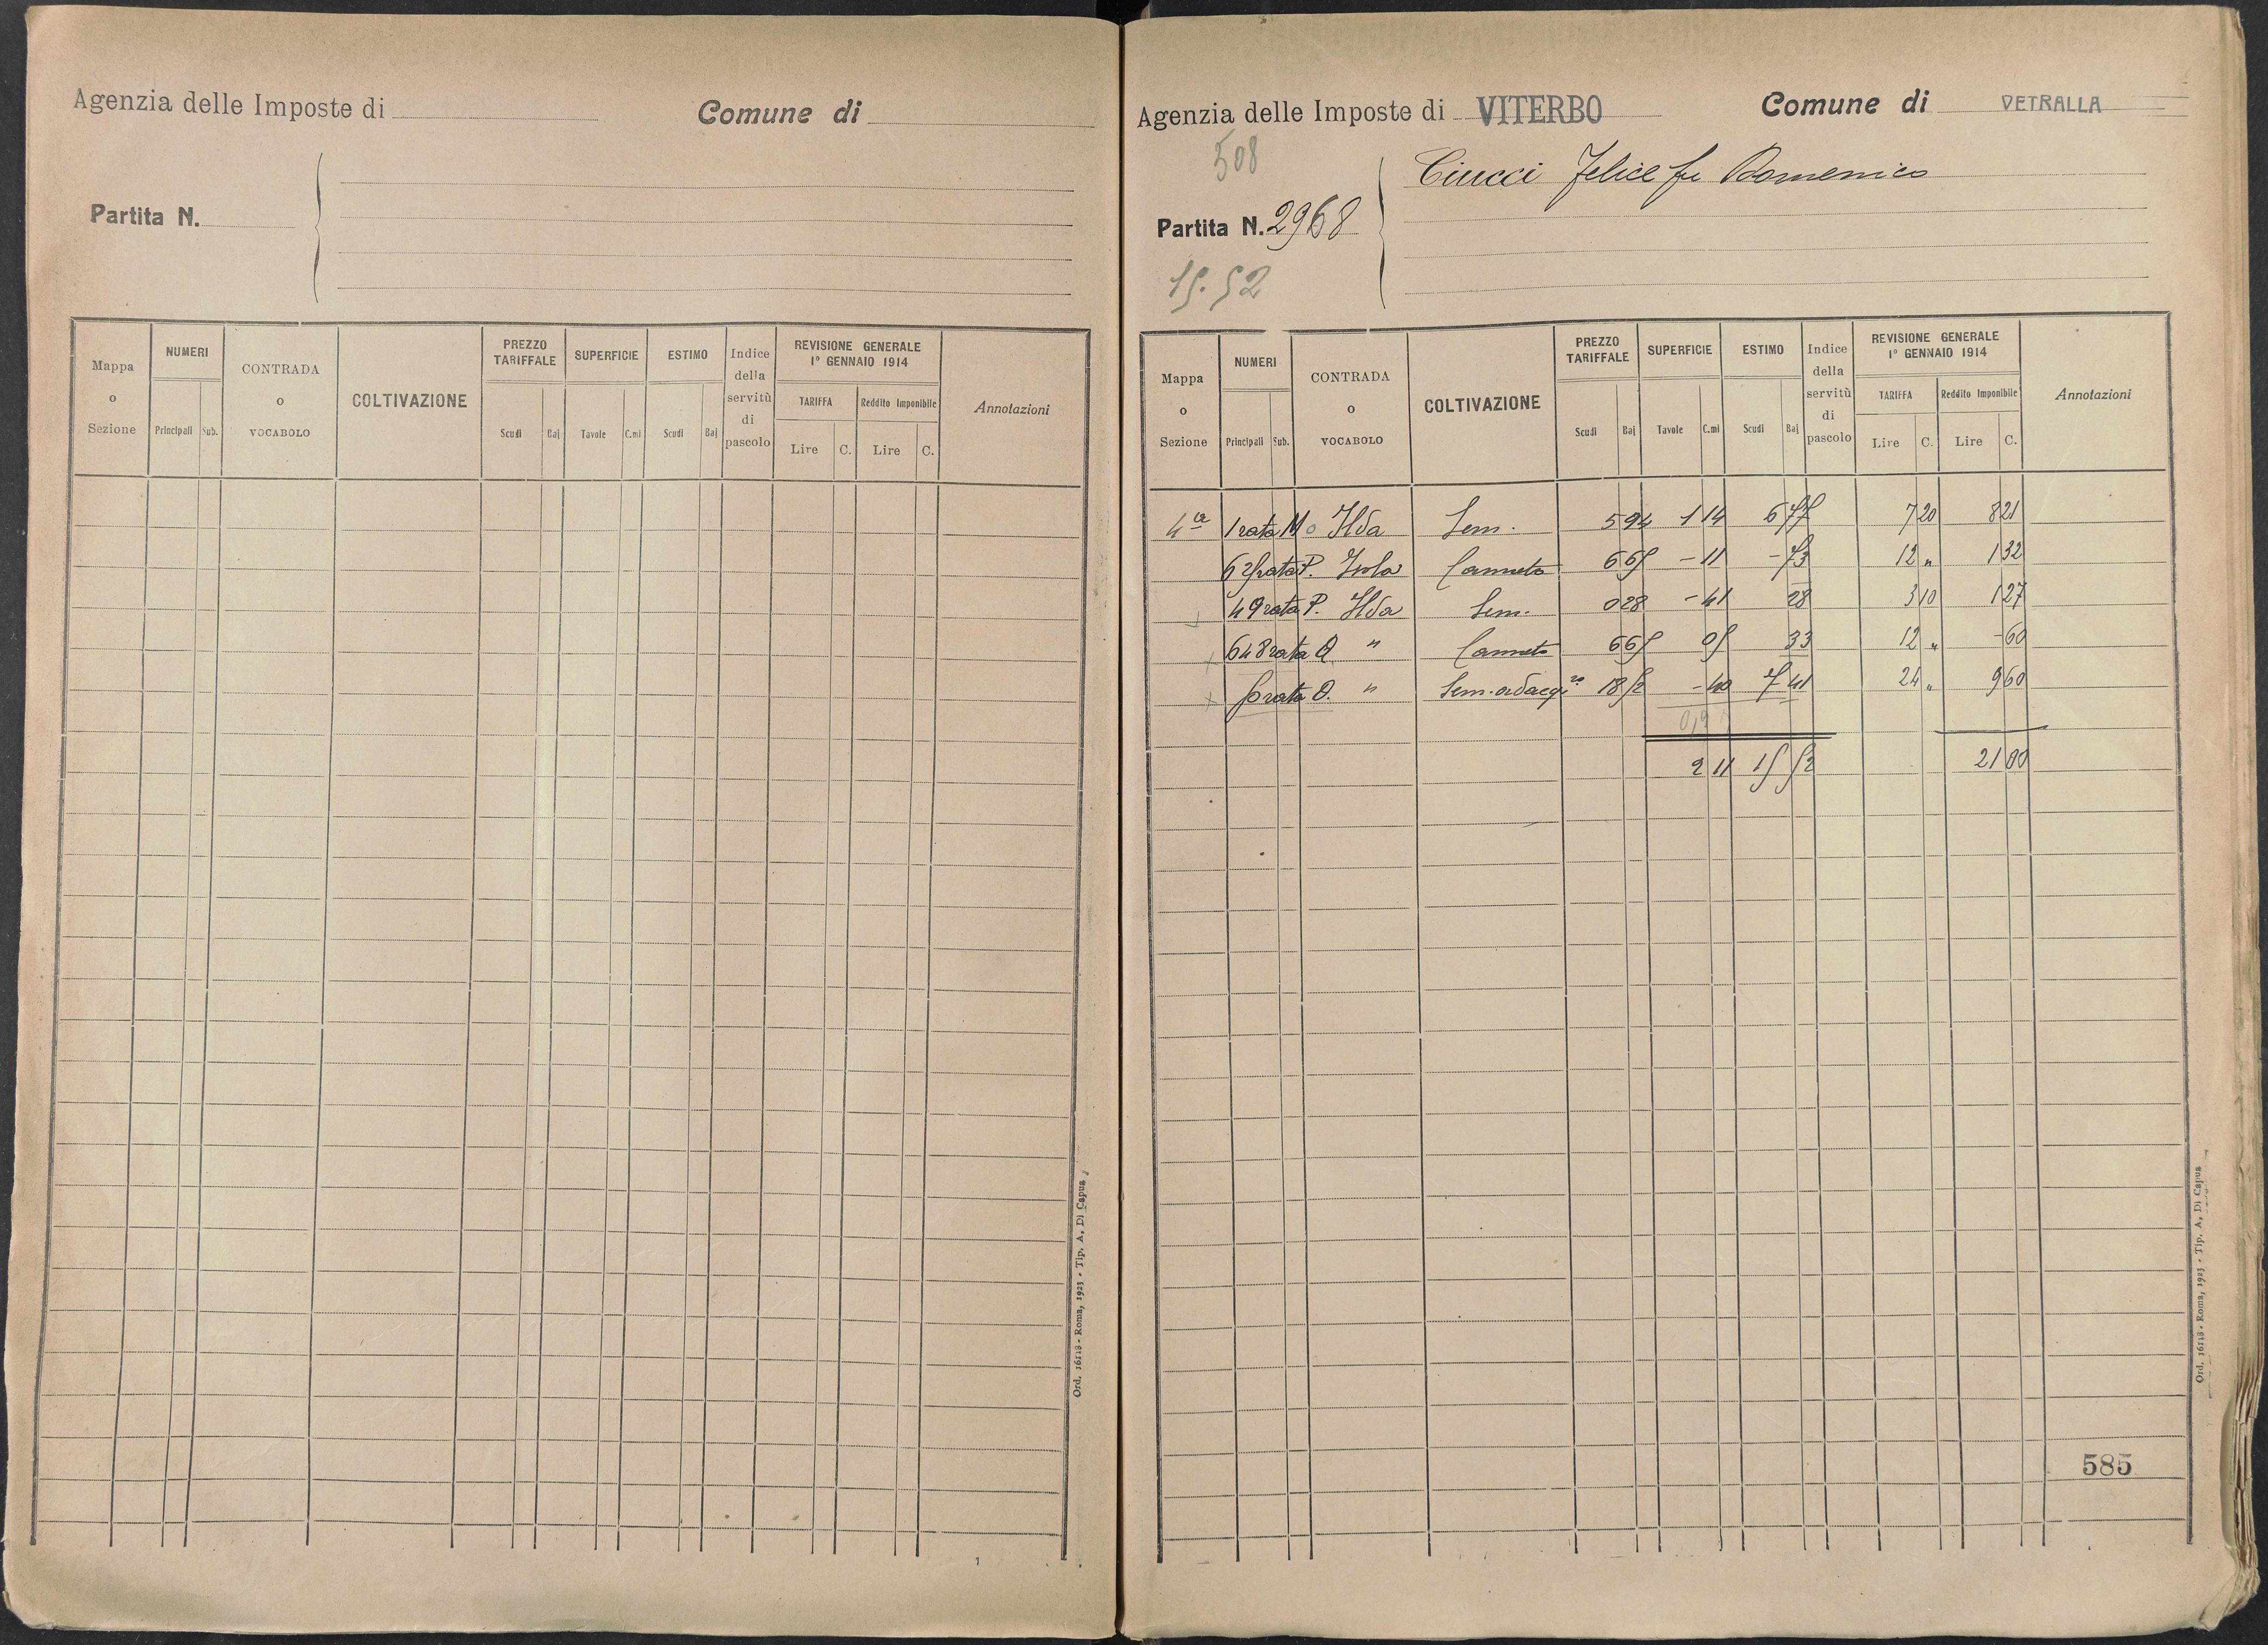 Agenzia delle Imposte di
Comune di
Partita N.
Mappa o Sezione
NUMERI
Principali Sub.
CONTRADA o VOCABOLO
COLTIVAZIONE
PREZZO TARIFFALE
Scudi Baj
SUPERFICIE
Tavole C.mi
ESTIMO
Scudi Baj
Indice della servitù di pascolo
REVISIONE GENERALE
1° GENNAIO 1914
TARIFFA Reddito Imponibile
Lire C. Lire C.
Annotazioni
Ord. 16118 - Roma, 1923 - Tip. A. Di Capua
1
Agenzia delle Imposte di VITERBO
Comune di VETRALLA
508
Ciucci Felice fu Domenico
Partita N. 2968
15.52
Mappa o Sezione
NUMERI
Principali Sub.
CONTRADA o VOCABOLO
COLTIVAZIONE
PREZZO TARIFFALE
Scudi Baj
SUPERFICIE
Tavole C.mi
ESTIMO
Scudi Baj
Indice della servitù di pascolo
REVISIONE GENERALE
1° GENNAIO 1914
TARIFFA Reddito Imponibile
Lire C. Lire C.
Annotazioni
4ª 1 rata Mo Ilda Sem. 5 94 1 14 6 77 7 20 8 21
625 rata P. Isola Canneto 6 65 - 11 - 73 12 " 1 32
49 rata P. Ilda Sem. 0 28 - 41 28 3 10 1 27
648 rata Q " Canneto 6 65 05 33 12 " - 60
50 rata O. " Sem. adacq.re 18 52 - 40 7 41 24 " 9 60
2 11 15 52 21 00
585
Ord. 16118 - Roma, 1923 - Tip. A. Di Capua